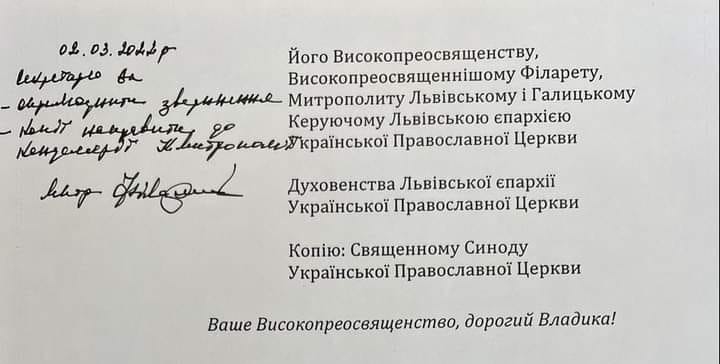 02.03.2022 р
Секретарю
- оприлюднити звернення
- Копії направити до
Канцелярії Митрополії
Його Високопреосвященству,
Високопреосвященнішому Філарету,
Митрополиту Львівському і Галицькому
Керуючому Львівською єпархією
Української Православної Церкви
Духовенства Львівської єпархії
Української Православної Церкви
Копію: Священному Синоду
Української Православної Церкви
Ваше Високопреосвященство, дорогий Владика!